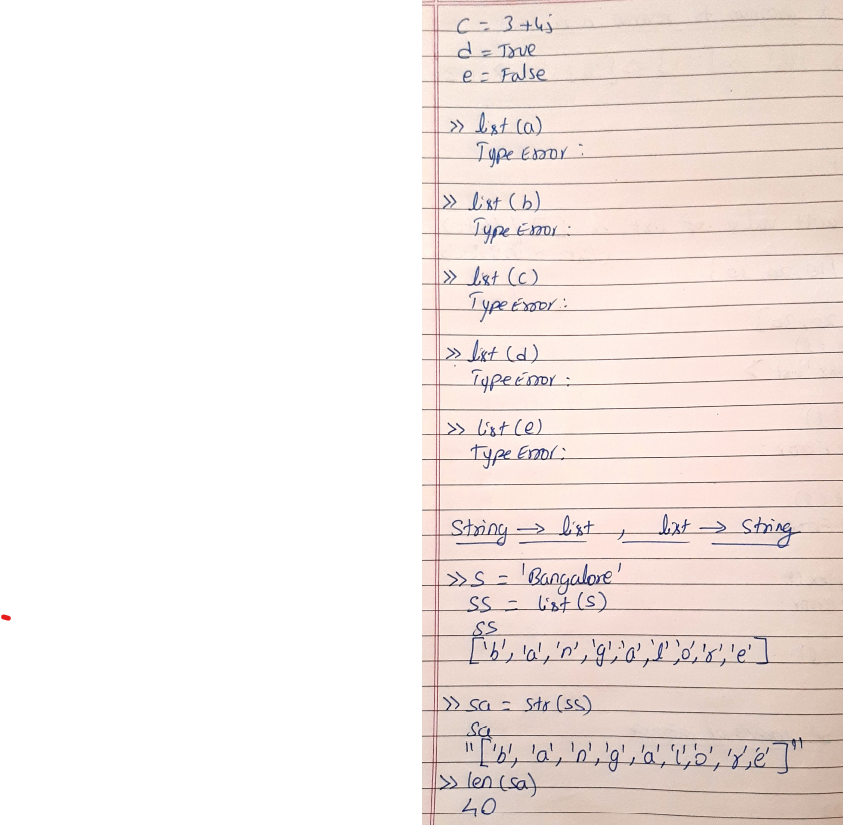 C = 3+4j
d = True
e = False
>> list (a)
Type Error :
>> list (b)
Type Error :
>> list (c)
Type Error :
>> list (d)
Type Error :
>> list (e)
Type Error :
String → list , list → String
>> S = 'Bangalore'
SS = list (S)
SS
['b', 'a', 'n', 'g', 'a', 'l', 'o', 'r', 'e']
>> sa = str (ss)
sa
"['b', 'a', 'n', 'g', 'a', 'l', 'o', 'r', 'e']"
>> len (sa)
40